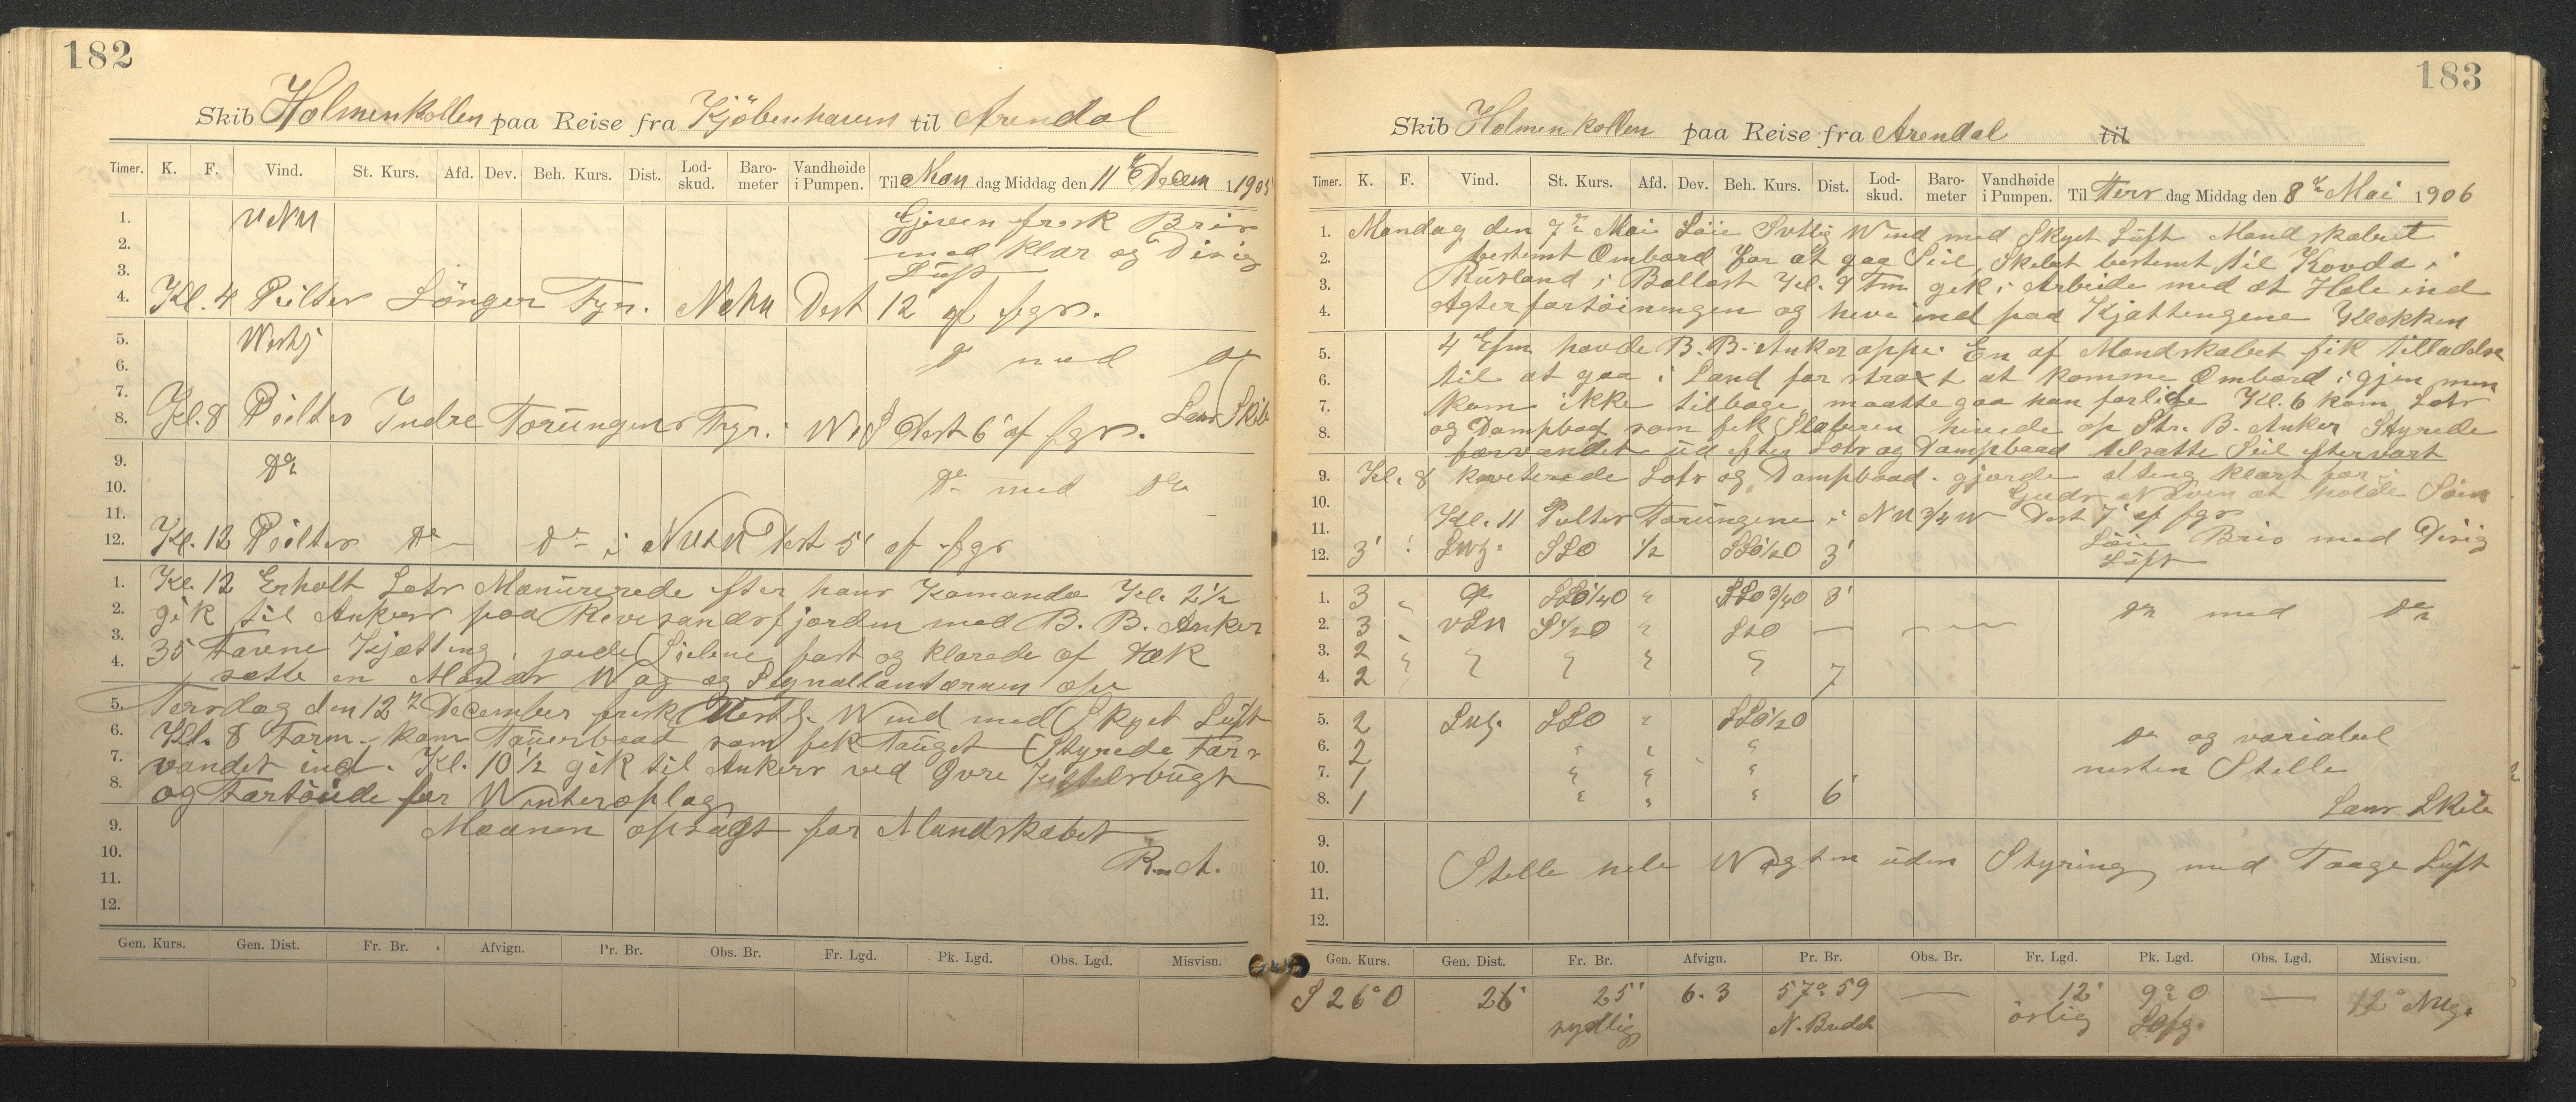 182
Skib Holmenkollen paa Reise fra Kjöbenhavn til Arendal
Timer. K. F. Vind. St. Kurs. Afd. Dev. Beh. Kurs. Dist. Lod-skud. Baro-meter Vandhøide i Pumpen. Til Man dag Middag den 11 te Decem 1905
1. VNW Gjvren frisk Bris
2. med klar og Disig
3. Luft
4. Kl. 4 Peilter Lönger Fyr. NNW Dest 12' af fgr.
5. Westj
6. do med do
7. Lanr Skib
8. Kl. 8 Peilter Indre Torungens Fyr. i W t S Dest 6' af fgr.
9. do
10. do med do
11.
12. Kl. 12 Peilter do do i NWtN Dest 5' af fgr
1. Kl. 12 Erholt Lots Manurerede efter hans Komando Kl. 2 1/2
2. gik til Ankers paa Revesandsfjorden med B. B. Anker
3. 35 Favne Kjætting, gjorde Seilene fast og klarede af Dæk
4. satte en Mands Wag og Signallantærnen op
5. Tersdag den 12 te December frisk Westl. Wind med Skyet Luft
6. Kl. 8 Form. kom Tauerbaad som fik Tauget Styrede Far
7. vandet ind. Kl. 10 1/2 gik til Ankers ved Qvre Kittelsbugt
8. og Fortöiede for Winteroplag
9. Maanen opsagt for Mandskabet
10. R.n.A.
11.
12.
Gen. Kurs. Gen. Dist. Fr. Br. Afvign. Pr. Br. Obs. Br. Fr. Lgd. Pk. Lgd. Obs. Lgd. Misvisn.
183
Skib Holmenkollen paa Reise fra Arendal til
Timer. K. F. Vind. St. Kurs. Afd. Dev. Beh. Kurs. Dist. Lod-skud. Baro-meter Vandhøide i Pumpen. Til Ters dag Middag den 8 de Mai 1906
1. Mandag den 7 de Mai Löie Svtlig Wind med Skyet Luft Mandskabet
2. bestemt Ombord for at gaa Seil, Skibet bestemt til Kovda i
3. Rusland i Ballast Kl. 9 Fm gik i Arbeide med at Hale ind
4. Agterfortöiningen og hive ind paa Kjættingene Klokken
5. 4 Efm havde B. B. Anker oppe. En af Mandskabet fik tilladelse
6. til at gaa i Land for strax at komme Ombord igjen men
7. kom ikke tilbage, maatte gaa han forlide Kl. 6 kom Lots
8. og Dampbad som fik Slaberen hivede op Str. B. Anker Styrede
farvandet ud efter Lots og Dampbaad tilsatte Seil eftervart
9. Kl. 8 kviterede Lots og Dampbaad. gjorde alting klart for
10. Guds Navn at holde Söen
11. Kl. 11 Peilter Torungene i NW 3/4 W Dest 7' af fgr
12. 3' Swj. SSO 1/2 SSO 1/2 O 3' Löie Bris med Disig
Luft
1. 3 do SSO 1/4 O " SSO 3/4 O 3' do med do
2. 3 VSW S 1/2 O " StO
3. 2 " " " "
4. 2 7
5. 2 Swj. SSO " SSO 1/2 O
6. 2 " " " do og variabel
7. 1 " " " nesten Stelle
8. 1 " " " 6' Lanr Skib
9.
10. Stelle hele Wagten uden Styring med Taage Luft
11.
12.
Gen. Kurs. Gen. Dist. Fr. Br. Afvign. Pr. Br. Obs. Br. Fr. Lgd. Pk. Lgd. Obs. Lgd. Misvisn.
S 26° O 26' 25' 6.3 57° 59 — 12' 9° 0 — 12° NWg.
sydlig N. Bredde östlig